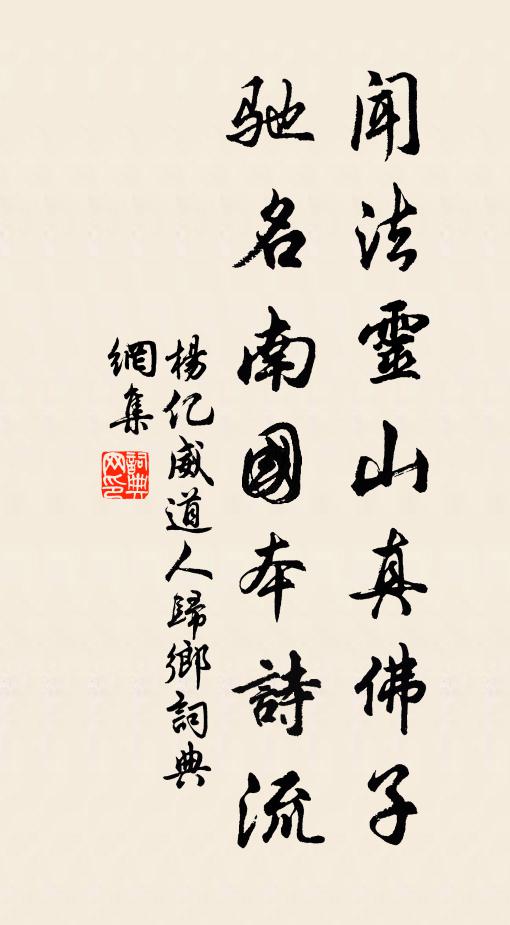 闻法靈山真佛子
驰名南國本詩流
楊亿威道人歸鄉詞典
網集
詞典网印